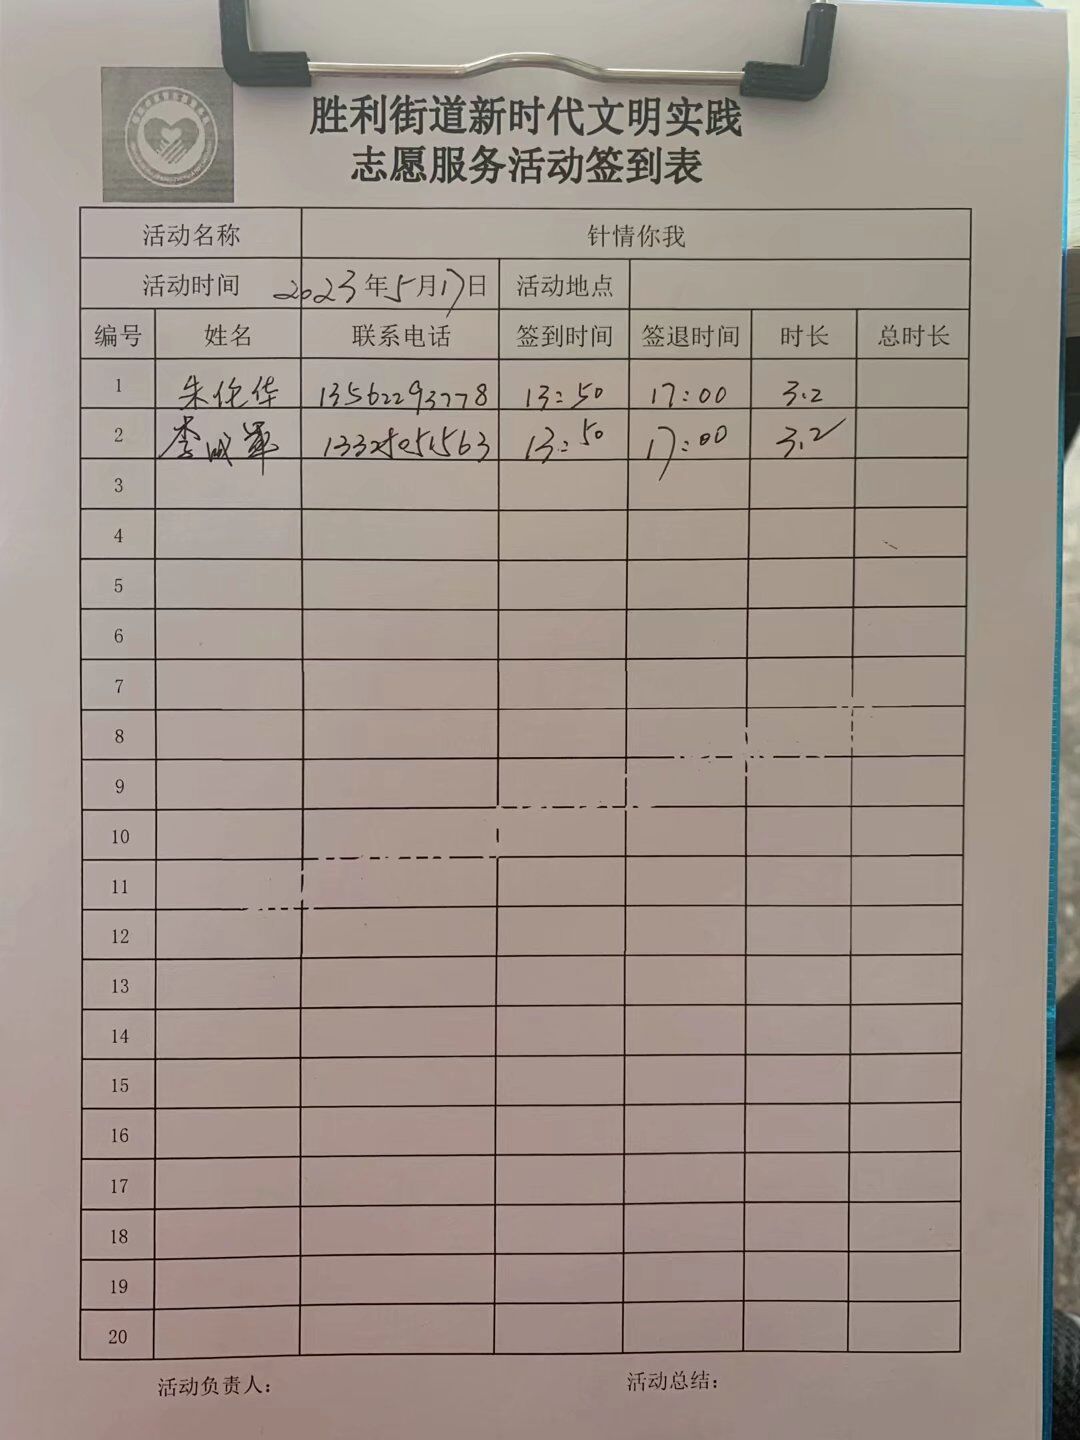 胜利街道新时代文明实践
志愿服务活动签到表
活动名称 针情你我
活动时间 2023年5月17日 活动地点
编号 姓名 联系电话 签到时间 签退时间 时长 总时长
1 朱伦华 13562293778 13:50 17:00 3.2
2 李成军 13:50 17:00 3.2
3
4
5
6
7
8
9
10
11
12
13
14
15
16
17
18
19
20
活动负责人： 活动总结：